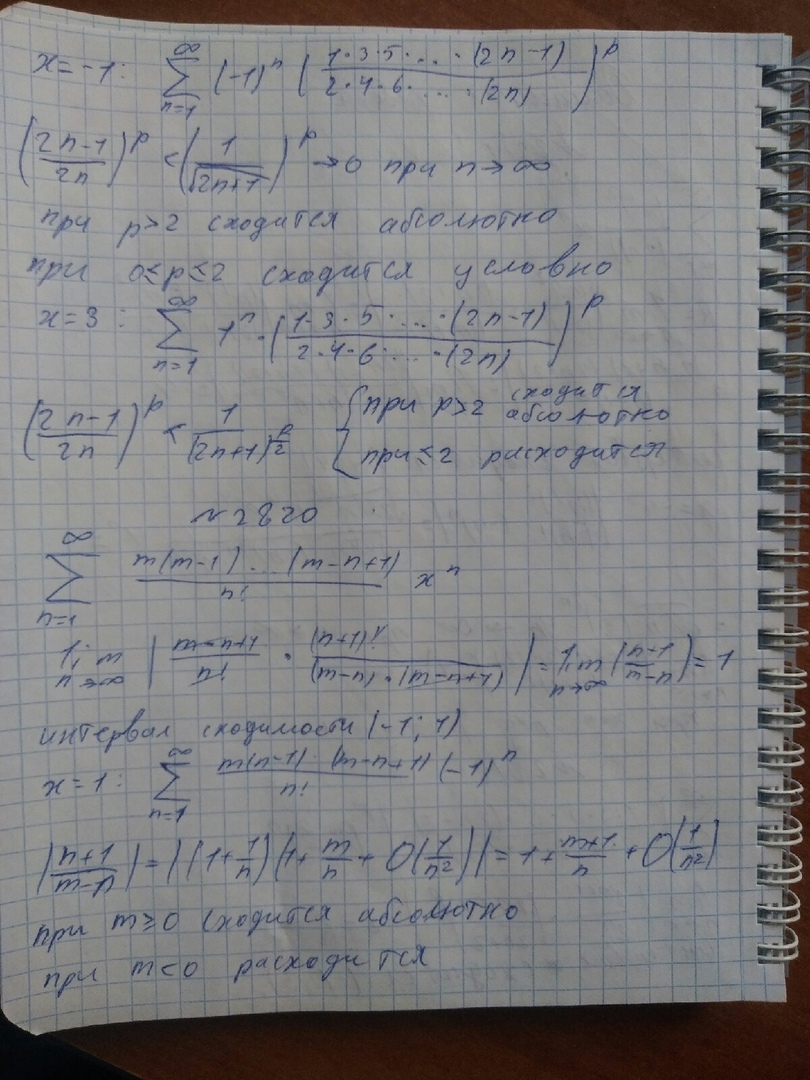 x=-1: ∑_{n=1}^{∞} (-1)^n (1·3·5·...·(2n-1) / 2·4·6·...·(2n))^p
((2n-1)/2n)^p < (1/√(2n+1))^p → 0 при n→∞
при p>2 сходится абсолютно
при 0≤p≤2 сходится условно
x=3: ∑_{n=1}^{∞} 1^n·(1·3·5·...·(2n-1) / 2·4·6·...·(2n))^p
((2n-1)/2n)^p < 1/(2n+1)^{p/2} { при p>2 сходится абсолютно
при ≤2 расходится
~2820
∑_{n=1}^{∞} m(m-1)...(m-n+1)/n! x^n
lim_{n→∞} |(m-n+1)/n! · (n+1)!/((m-n)·(m-n+1))| = lim_{n→∞} (n-1)/(m-n) = 1
интервал сходимости (-1; 1)
x=1: ∑_{n=1}^{∞} m(n-1)...(m-n+1)/n! (-1)^n
|(n+1)/(m-n)| = |(1+1/n)(1+m/n+O(1/n²))| = 1+(m+1)/n+O(1/n²)
при m≥0 сходится абсолютно
при m<0 расходится